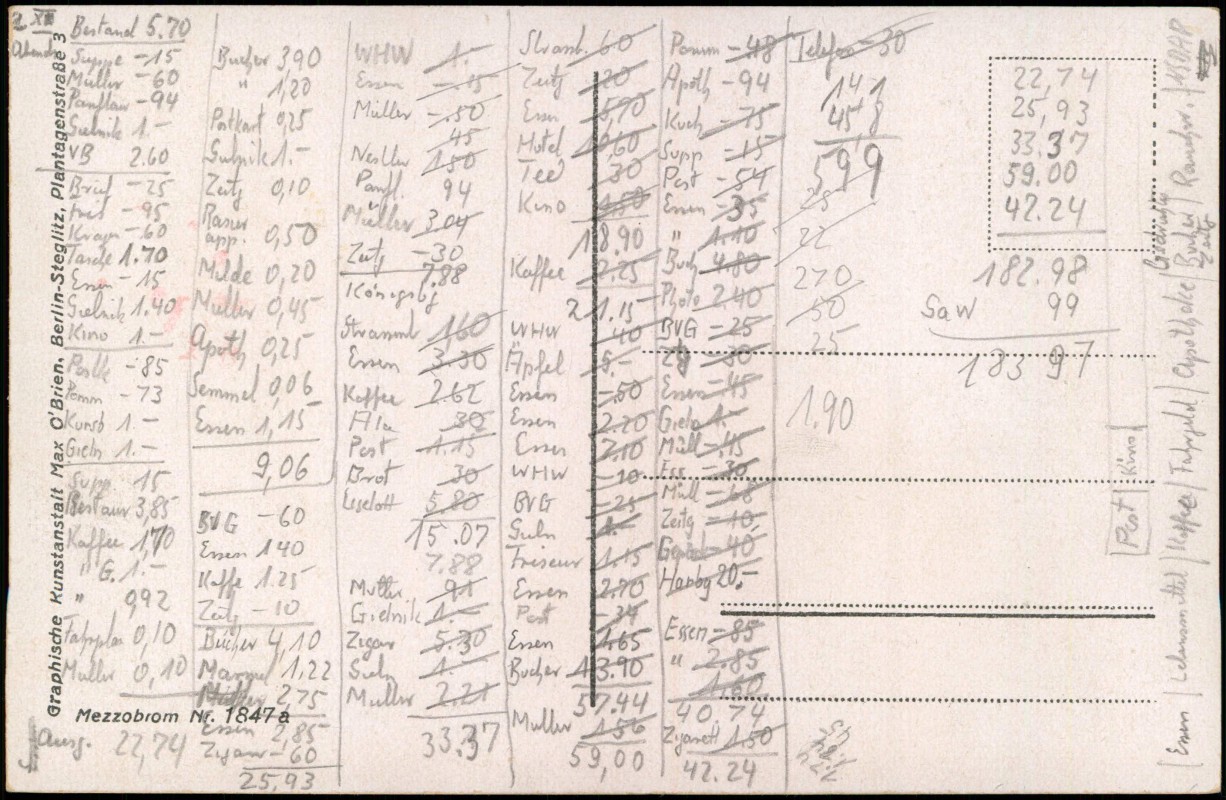 2 XII
Abends
Bestand 5.70
Suppe -15
Müller -60
Panflav -94
Gielnik 1.-
VB 2.60
Brief -25
Fris -95
Kragen -60
Tasche 1.70
Essen -15
Gielnik 1.40
Kino 1.-
Postk -85
Pomm -73
Kunsb 1.-
Gieln 1.-
Supp 15
Restaur 3,85
Kaffee 1,70
" G. 1.-
" 0,92
0,10
Müller 0,10
Ausg. 22,74
Bücher 3 90
" 1,20
Postkart 0,25
Gielnik 1.-
Zeitg 0,10
Rasier
app. 0,50
Milde 0,20
Müller 0,45
Apoth 0,25
Semmel 0 06
Essen 1,15
9,06
BVG -60
Essen 1 40
Kaffe 1.25
Zeitg -10
Bücher 4,10
1,22
Müller 2,75
Essen 2,85
Zigarr -60
25,93
WHW 1.-
Essen -.15
Müller -.50
45
Nestler 1.50
Panfl. 94
Müller 3.04
Zeitg -30
7.88
Königsbg
Strassenb 1,60
Essen 3.30
Kaffee 2.62
Ala 30
Post 1.15
Brot 30
Liselott 5.80
15.07
7.88
Müller 91
Gielnik 1.-
Zigar 5.30
Gieln 1.-
Müller 2.21
33.37
Strassb. 60
Zeitg 20
Essen 5,70
Hotel 10,60
Tee 30
Kino 1.50
18.90
Kaffee 2.25
21.15
WHW 40
Äpfel 5.-
Essen -.50
Essen 2.20
Essen 2.10
WHW -10
BVG -25
Gieln 1.-
Friseur 1.15
Essen 2.70
Post -34
Essen 1.65
Bücher 13.90
57.44
Müller 1.56
59,00
Pomm -48
Apoth -94
Kuch -75
Supp -15
Post -54
Essen -35
" 1.10
Buch 4.80
Photo 2.40
BVG -25
Ztg -30
Essen -45
Gieln 1.-
Müll -.45
Ess -30
Müll -68
Zeitg -10
-40
Hambg 20,-
Essen -85
" 2.85
1.60
40.74
Zigarett 1.50
42.24
Telefon -30
141
45,8
599
25
22
270
50
25
1.90
22,74
25,93
33.37
59.00
42.24
182.98
SaW 99
183 97
Post | Kino
Essen | Lebensmittel | Kaffee | Fahrgeld | Apotheke | Bücher Zeitg | Rauchw. | NSDAP
Graphische Kunstanstalt Max O'Brien, Berlin-Steglitz, Plantagenstraße 3
Mezzobrom Nr. 1847a